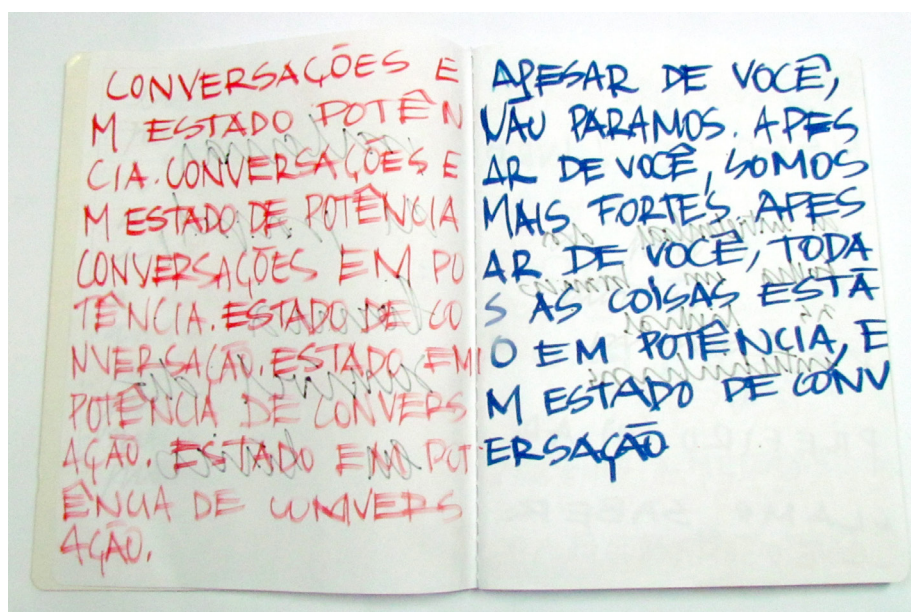 CONVERSAÇÕES E
M ESTADO POTÊN
CIA. CONVERSAÇÕES E
M ESTADO DE POTÊNCIA
CONVERSAÇÕES EM PO
TÊNCIA. ESTADO DE CO
NVERSAÇÃO. ESTADO EM
POTÊNCIA DE CONVERS
AÇÃO. ESTADO EM POT
ÊNCIA DE CONVERS
AÇÃO.
APESAR DE VOCÊ,
NÃO PARAMOS. APES
AR DE VOCÊ, SOMOS
MAIS FORTES. APES
AR DE VOCÊ, TODA
S AS COISAS ESTÃ
O EM POTÊNCIA, E
M ESTADO DE CONV
ERSAÇÃO